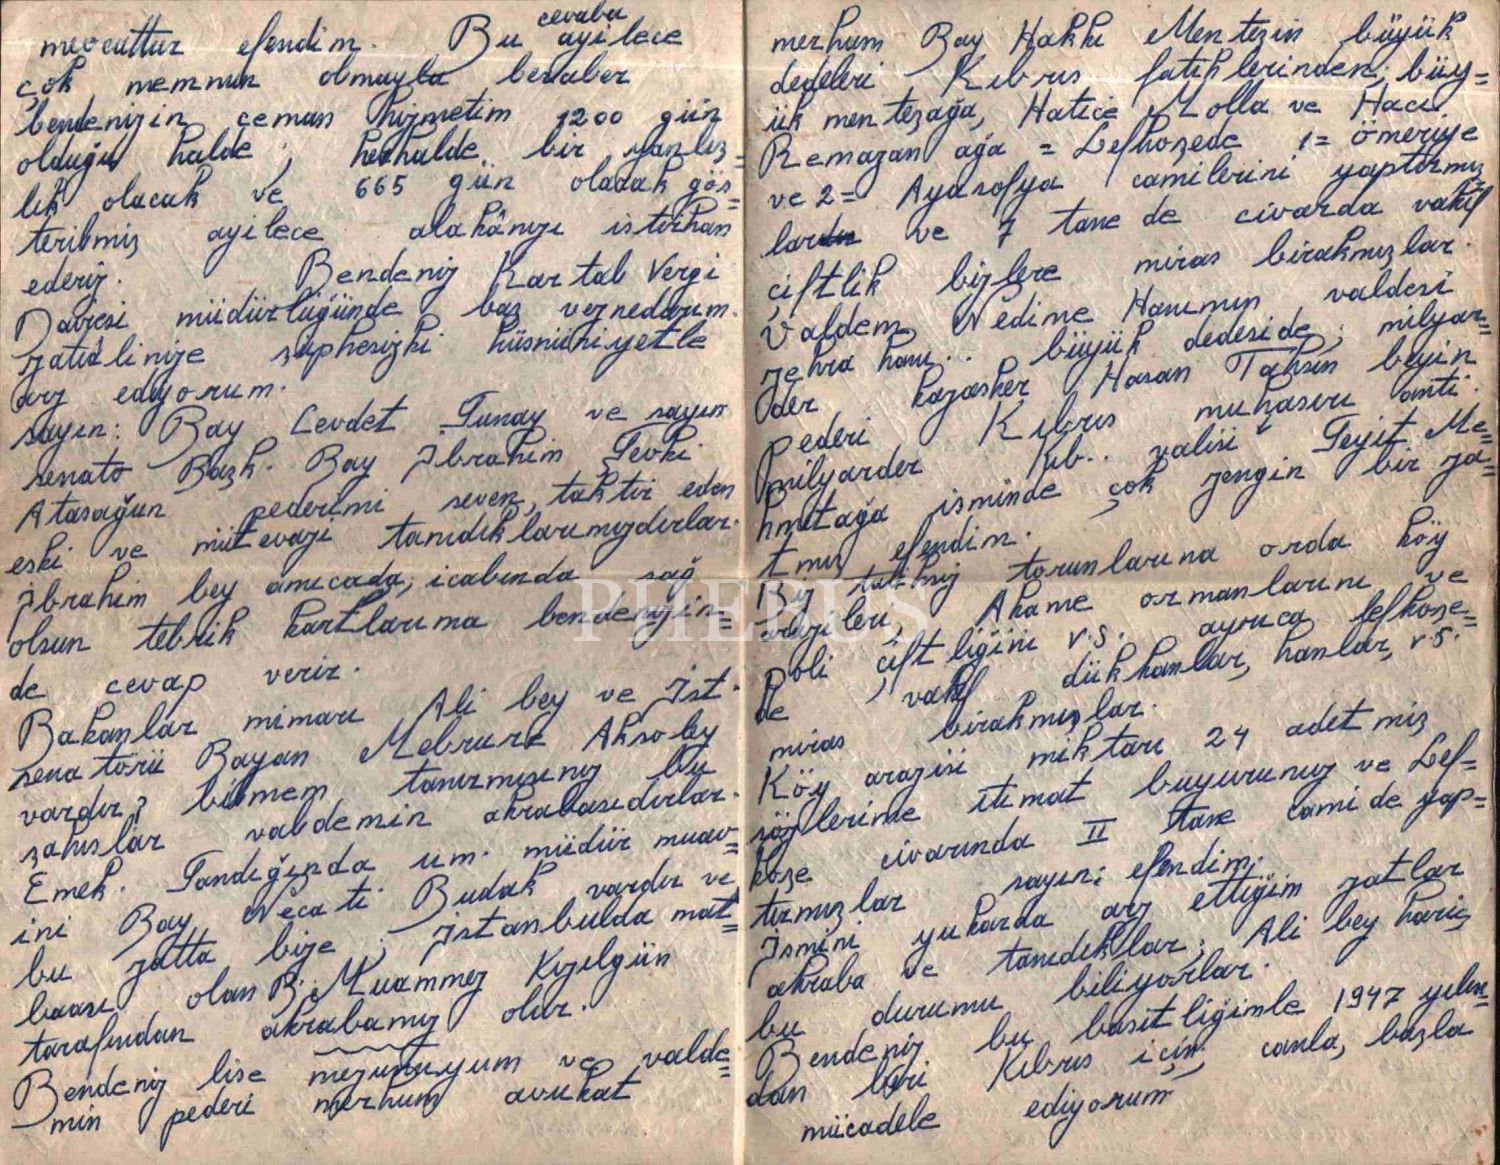 cevaba
mevcuttur efendim. Bu ayilece
çok memnun olmayla beraber
bendenizin ceman hizmetim 1200 gün
olduğu halde; herhalde bir yanlız=
lık olacak ve 665 gün olarak gös=
terilmiş ayilece alakânızı istirham
ederiz. Bendeniz Kartal Vergi
Dairesi müdürlüğünde baş veznedarım.
zatıâlinize şüphesizki hüsnüniyetle
arz ediyorum.
sayın: Bay Cevdet Sunay ve sayın
senato Başk. Bay İbrahim Şevki
Atasağun pederimi seven, taktir eden
eski ve mütevazi tanıdıklarımızdırlar.
İbrahim bey amıcada, icabında sağ
olsun tebrik kartlarıma bendenizin=
de cevap verir.
Bakanlar mimarı Ali bey ve İst.
senatörü Bayan Mebrure Aksoley
vardır, bilmem tanırmısınız bu
şahıslar valdemin akrabasıdırlar.
Emek. Sandığında um. müdür muav=
ini Bay Necati Budak vardır ve
bu zatta bize; İstanbulda mat=
baası olan B. Muammez Kızılgün
tarafından akrabamız olur.
Bendeniz lise mezunuyum ve valde=
min pederi merhum avukat
merhum Bay Hakkı Mentezin büyük
dedeleri Kıbrıs fatihlerinden; büy=
ük menteşağa, Hatice Molla ve Hacı
Remazan ağa = Lefkoşede 1= ömeriye
ve 2= Ayasofya camilerini yaptırmış
lar ve 7 tane de civarda vakıf
çiftlik bizlere miras bırakmışlar.
Valdem Nedime Hanımın valdesi
zehra hanı.. büyük dedeside; milyar=
der kazasker Hasan Tahsin beyin
pederi Kıbrıs muhasırı
milyarder Kıb.. valisi Seyit Me=
hmetağa isminde çok zengin bir za=
tmış efendim.
Biz talihsiz torunlarına orda köy
Akame ormanlarını ve
poli çiftliğini v.s. ayrıca lefkoşe=
de vakıf dükkanlar, hanlar, v.s.
miras bırakmışlar.
Köy arazisi miktarı 24 adetmiş
sözlerime itimat buyurunuz ve Lef=
koşe civarında II tane cami de yap=
tırmışlar sayın; efendim;
İsmini yukarda arz ettiğim zatlar
akraba ve tanıdıklar; Ali bey hariç
bu durumu biliyorlar.
Bendeniz bu basitliğimle 1947 yılın=
dan beri Kıbrıs için canla, başla
mücadele ediyorum
PHEBUS